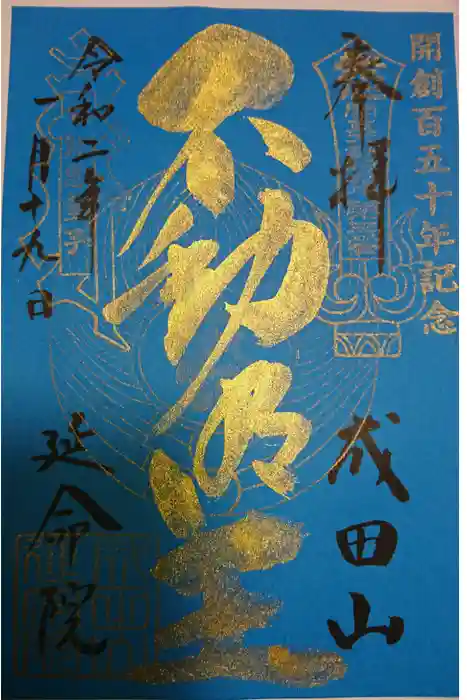 開創百五十年記念
奉拝
成田山
不動明王
令和二年
一月十九日
延命院